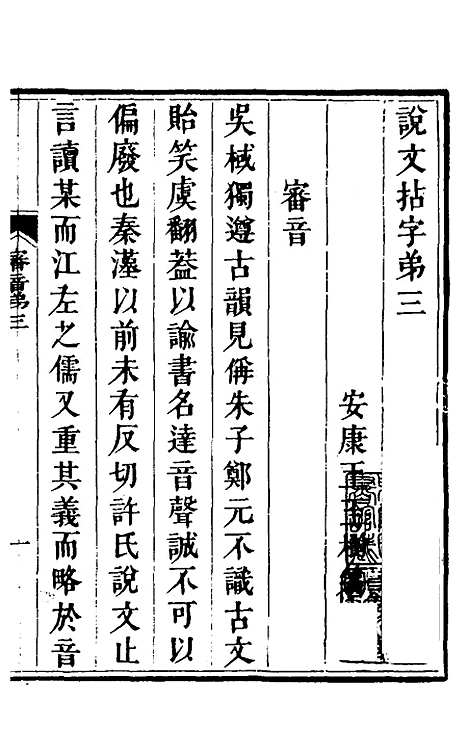 說文拈字弟三
安康王玉樹
審音
吳棫獨遵古韻見偁朱子鄭元不識古文
貽笑虞翻葢以諭書名達音聲誠不可以
偏廢也秦漢以前未有反切許氏說文止
言讀某而江左之儒又重其義而略於音
審音弟三
一